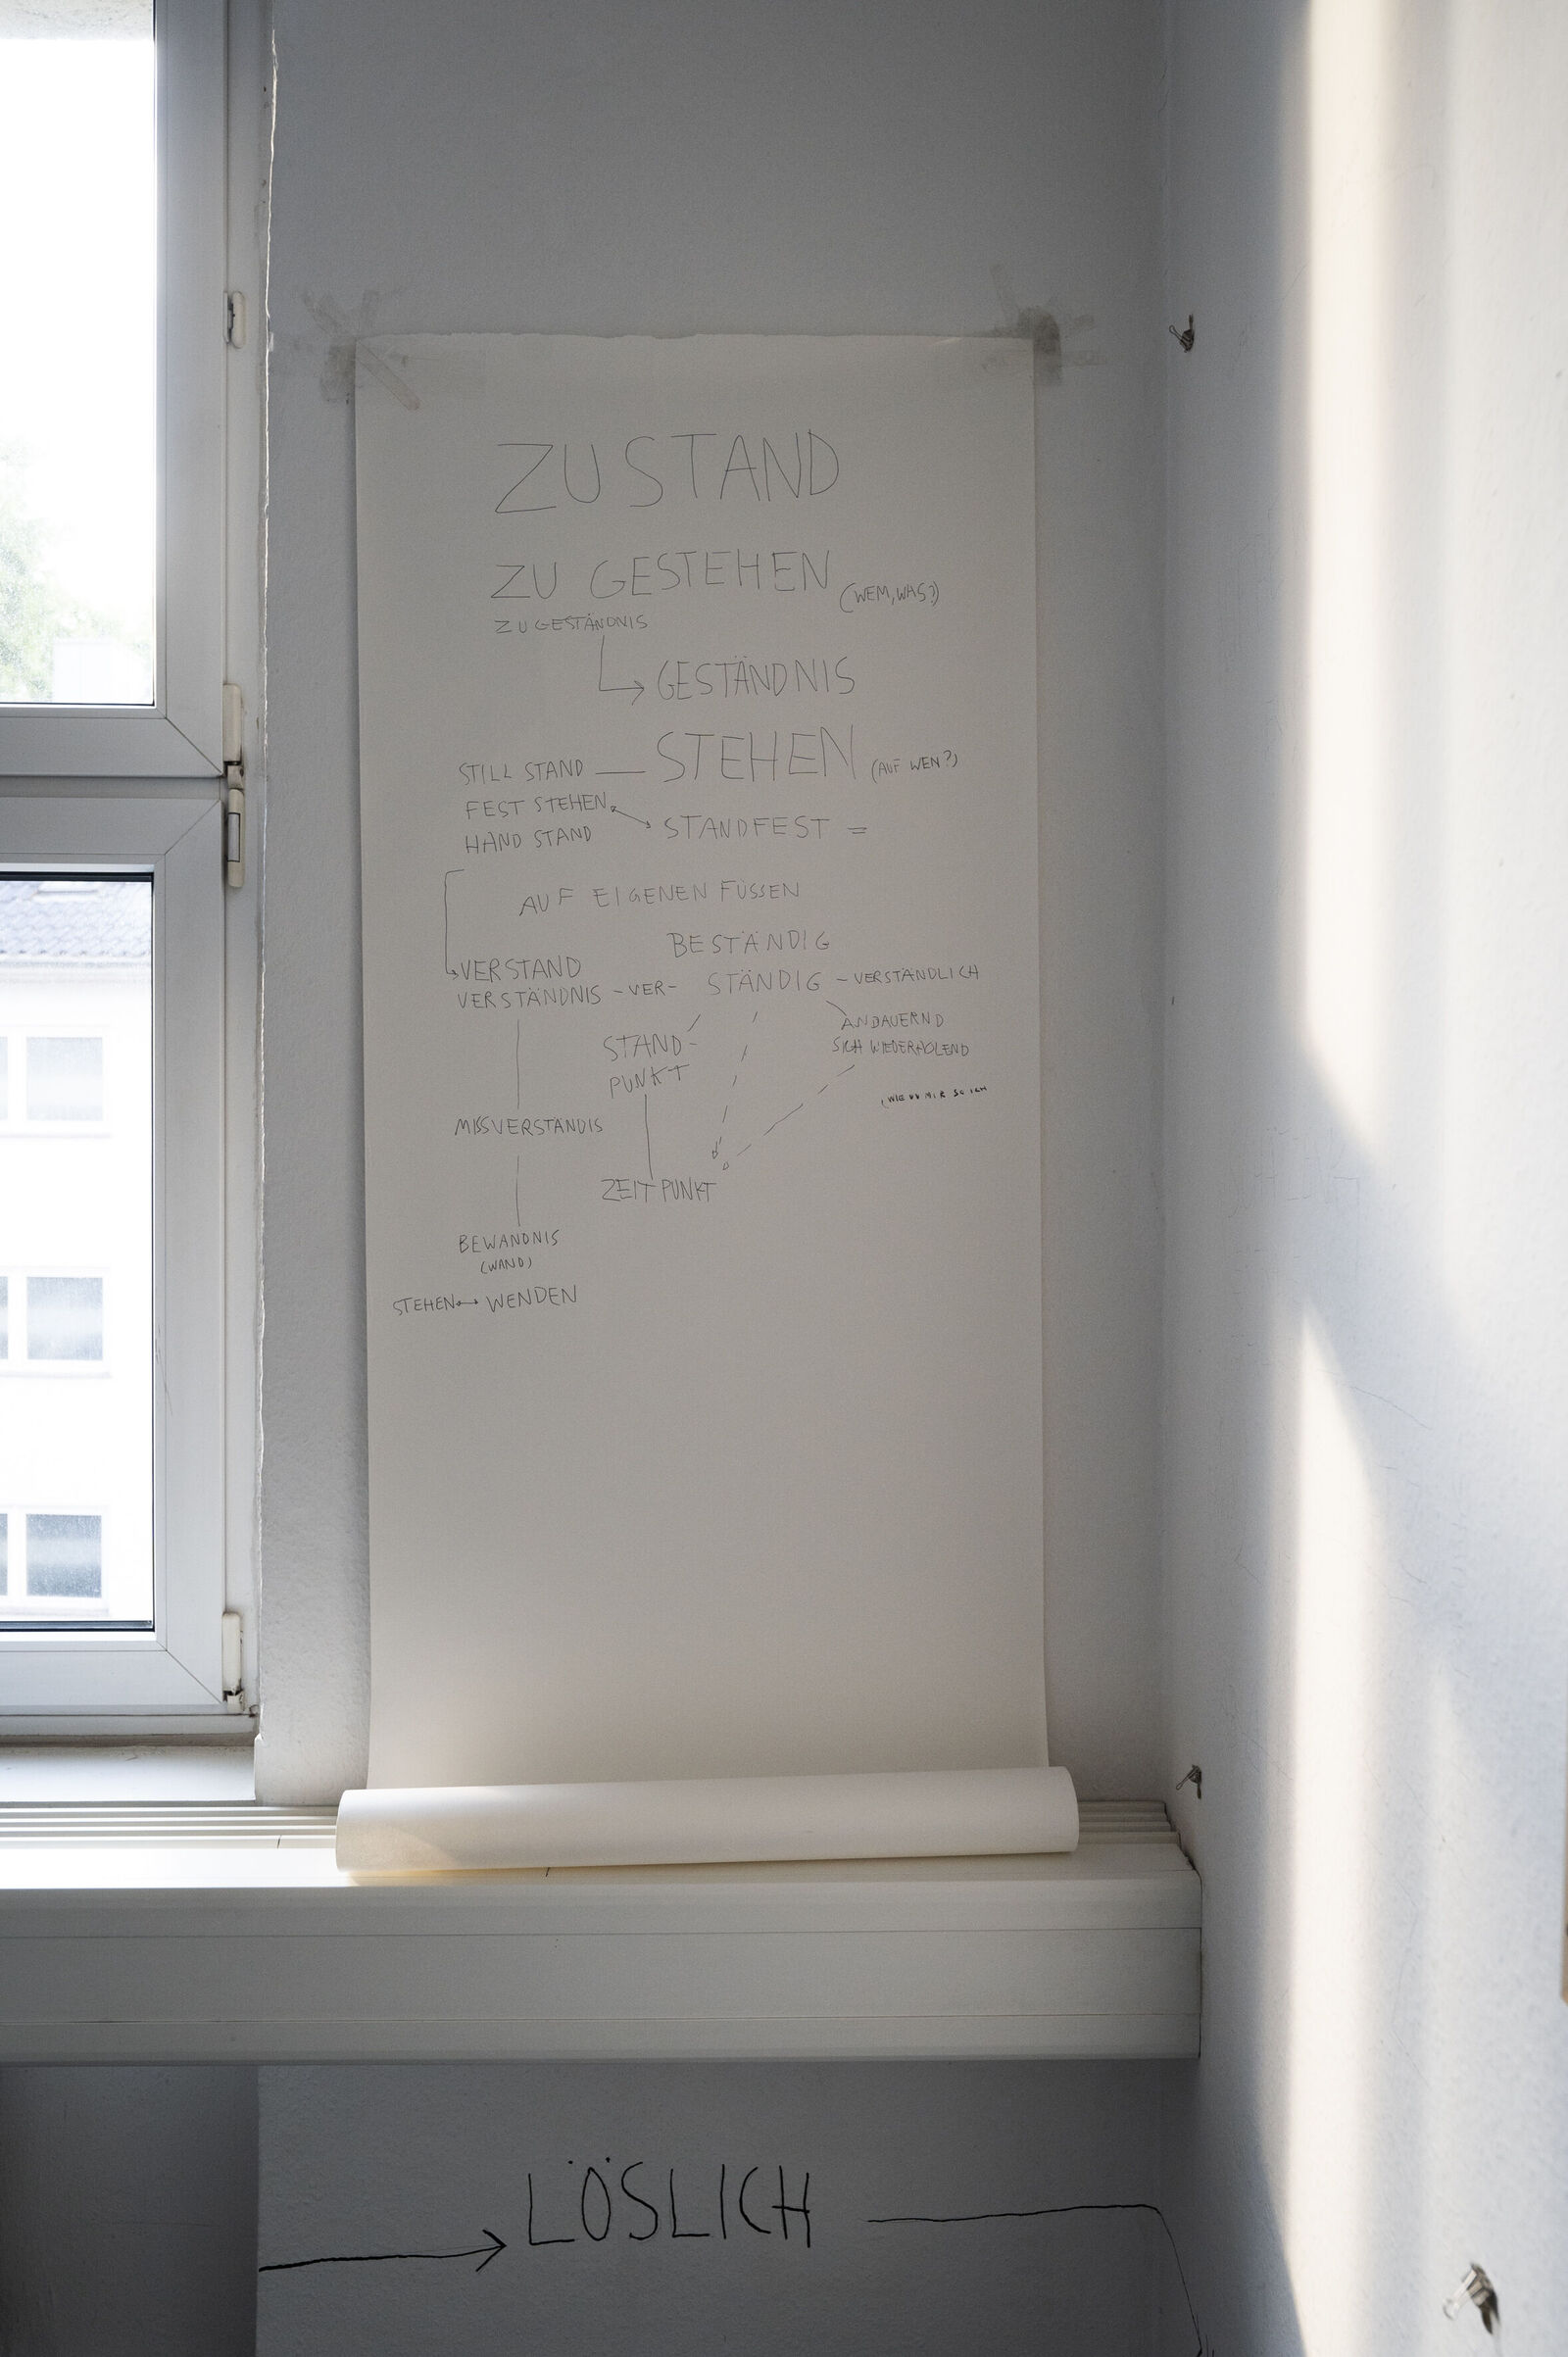 ZUSTAND
ZU GESTEHEN (WEM, WAS?)
ZUGESTÄNDNIS
GESTÄNDNIS
STILL STAND — STEHEN (AUF WEN?)
FEST STEHEN
STANDFEST =
HAND STAND
AUF EIGENEN FÜSSEN
BESTÄNDIG
VERSTAND
VERSTÄNDNIS - VER- STÄNDIG - VERSTÄNDLICH
ANDAUERND
STAND-
SICH WIEDERHOLEND
PUNKT
(WIE DU MIR SO ICH
MISSVERSTÄNDIS
ZEITPUNKT
BEWANDNIS
(WAND)
STEHEN ↔ WENDEN
LÖSLICH